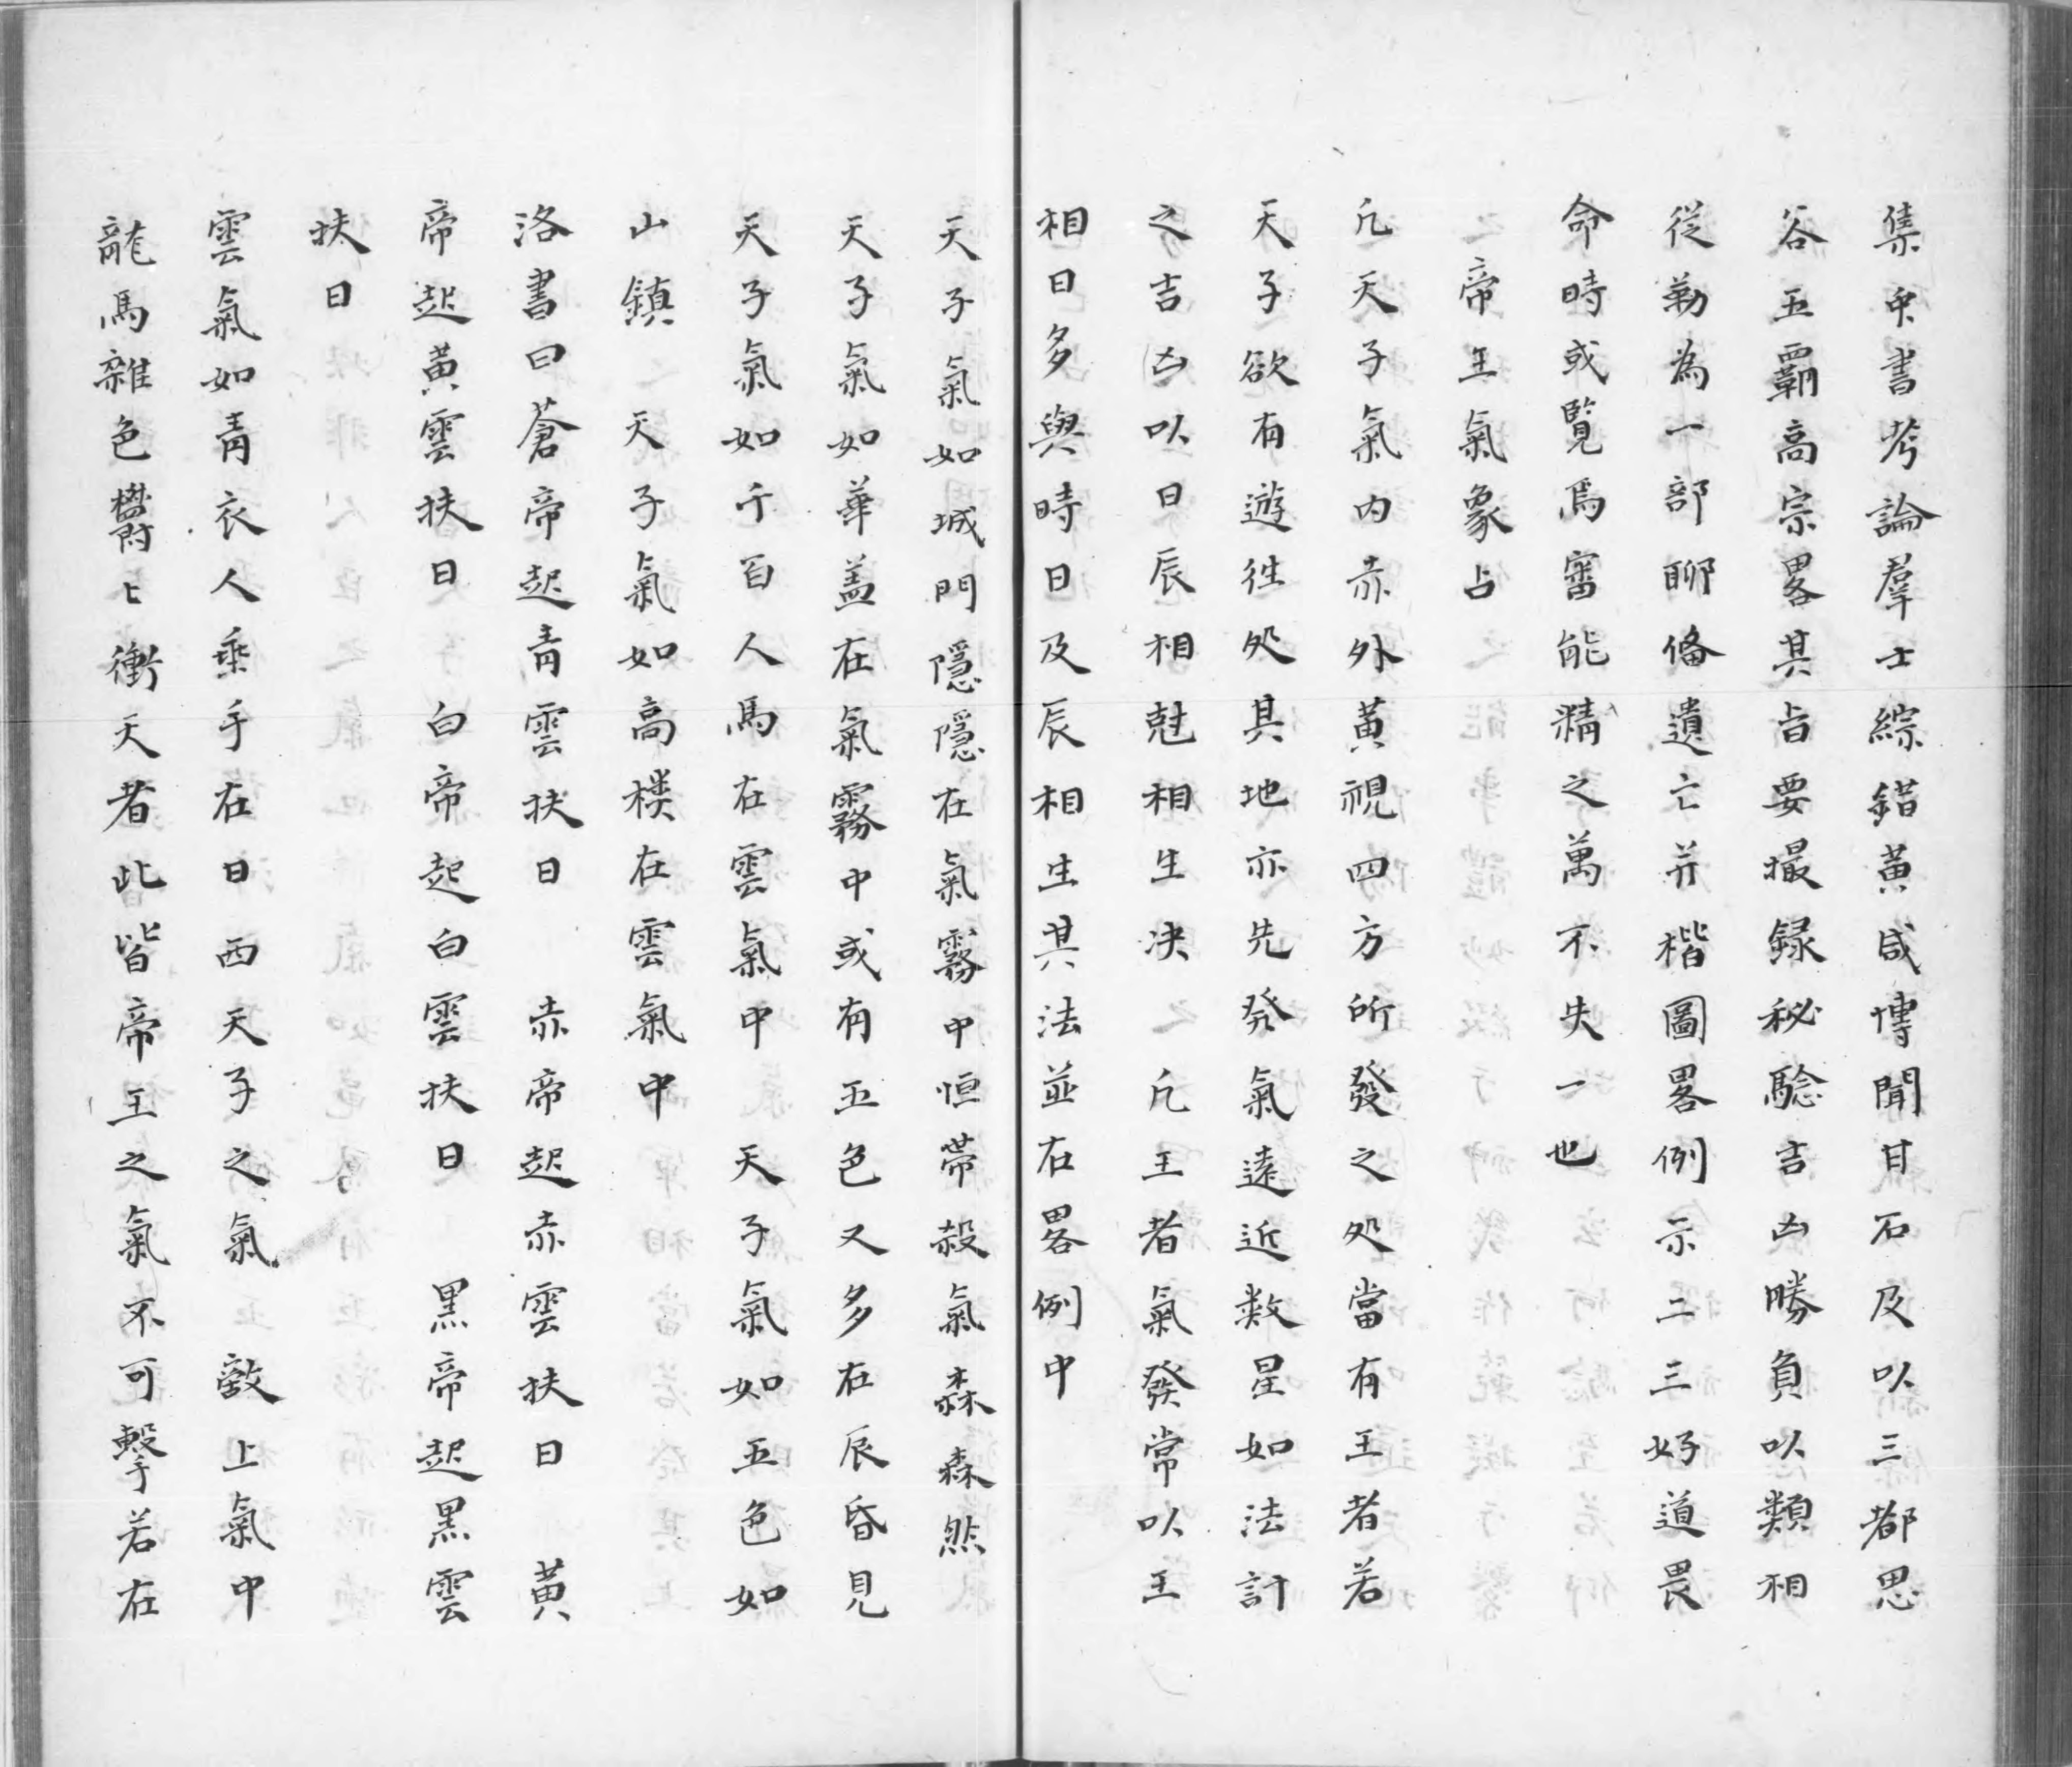 集中書考論羣士綜錯黃咸博聞甘石及以三都思
谷五霸高宗畧其旨要撮録秘驗吉凶勝負以類相
從勒為一部聊俻遺亡并楷圖畧例示二三好道畏
命時或覽焉審能精之萬不失一也
帝王氣象占
凢天子氣内赤外黃視四方所發之処當有王者若
天子欲有遊徃処其地亦先発氣遠近数星如法計
之吉凶以日辰相尅相生决之凢王者氣發常以王
相日多與時日及辰相生其法並在畧例中
天子氣如城門隱隱在氣霧中恒帶殺氣森森然
天子氣如華盖在氣霧中或有五色又多在辰昏見
天子氣如千百人馬在雲氣中 天子氣如五色如
山鎮 天子氣如高楼在雲氣中
洛書曰蒼帝起青雲扶日 赤帝起赤雲扶日 黃
帝起黃雲扶日 白帝起白雲扶日 黒帝起黒雲
扶日
雲氣如青衣人乗手在日西天子之氣 敵上氣中
龍馬雜色欝〻衝天者此皆帝王之氣不可擊若在